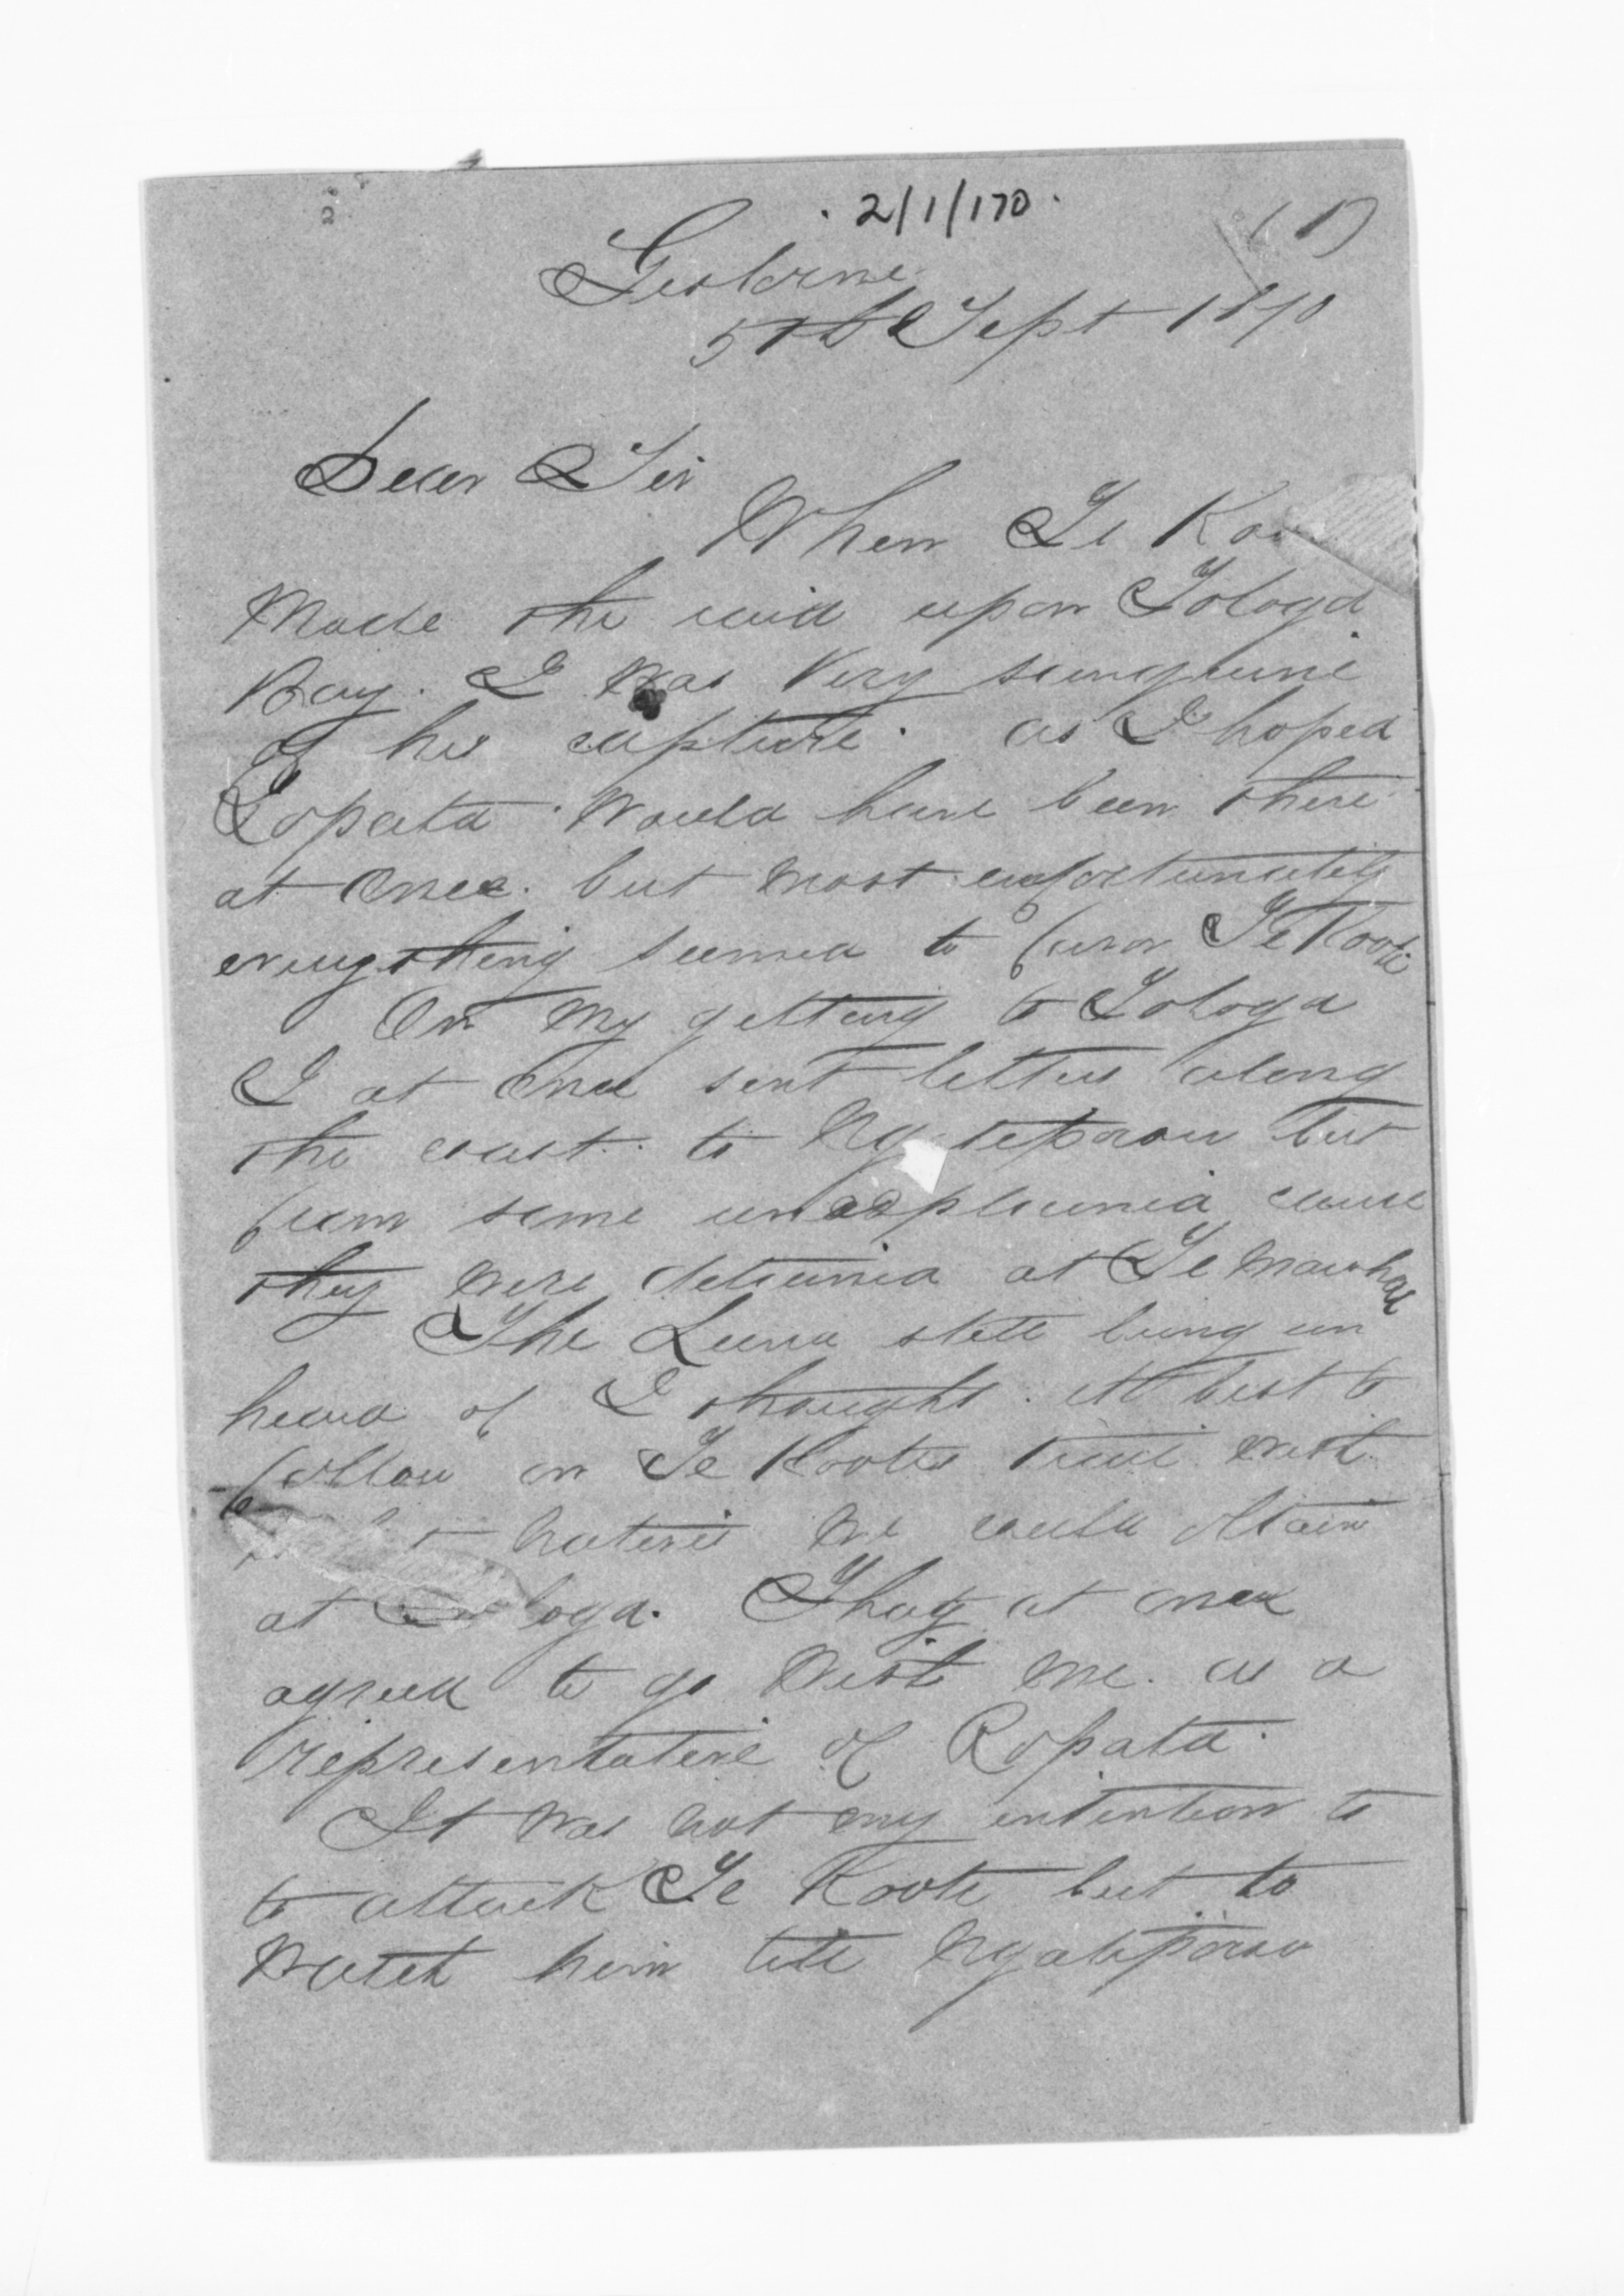 2/1/170.
(1)
Gisborne
5th Sept 1870
Dear Sir
When Te Koo
Made the raid upon Tologa
Bay. I was very sanguine
of his capture. as I hoped
Ropata would have been there
at once. but most unfortunately
everything seemed to favor Te Kooti
On my getting to Tologa
I at once sent letters along
the coast to Ngateporou but
from some unexplained cause
they were detained at Te Mawhai
The Luna still being un
heard of I thought it best to
follow on Te Kootis trail with
natives we could obtain
at Tologa. They at once
agreed to go with me. as a
representative of Ropata.
It was not my intention to
to attack Te Kooti but to
watch him till Ngatiporou